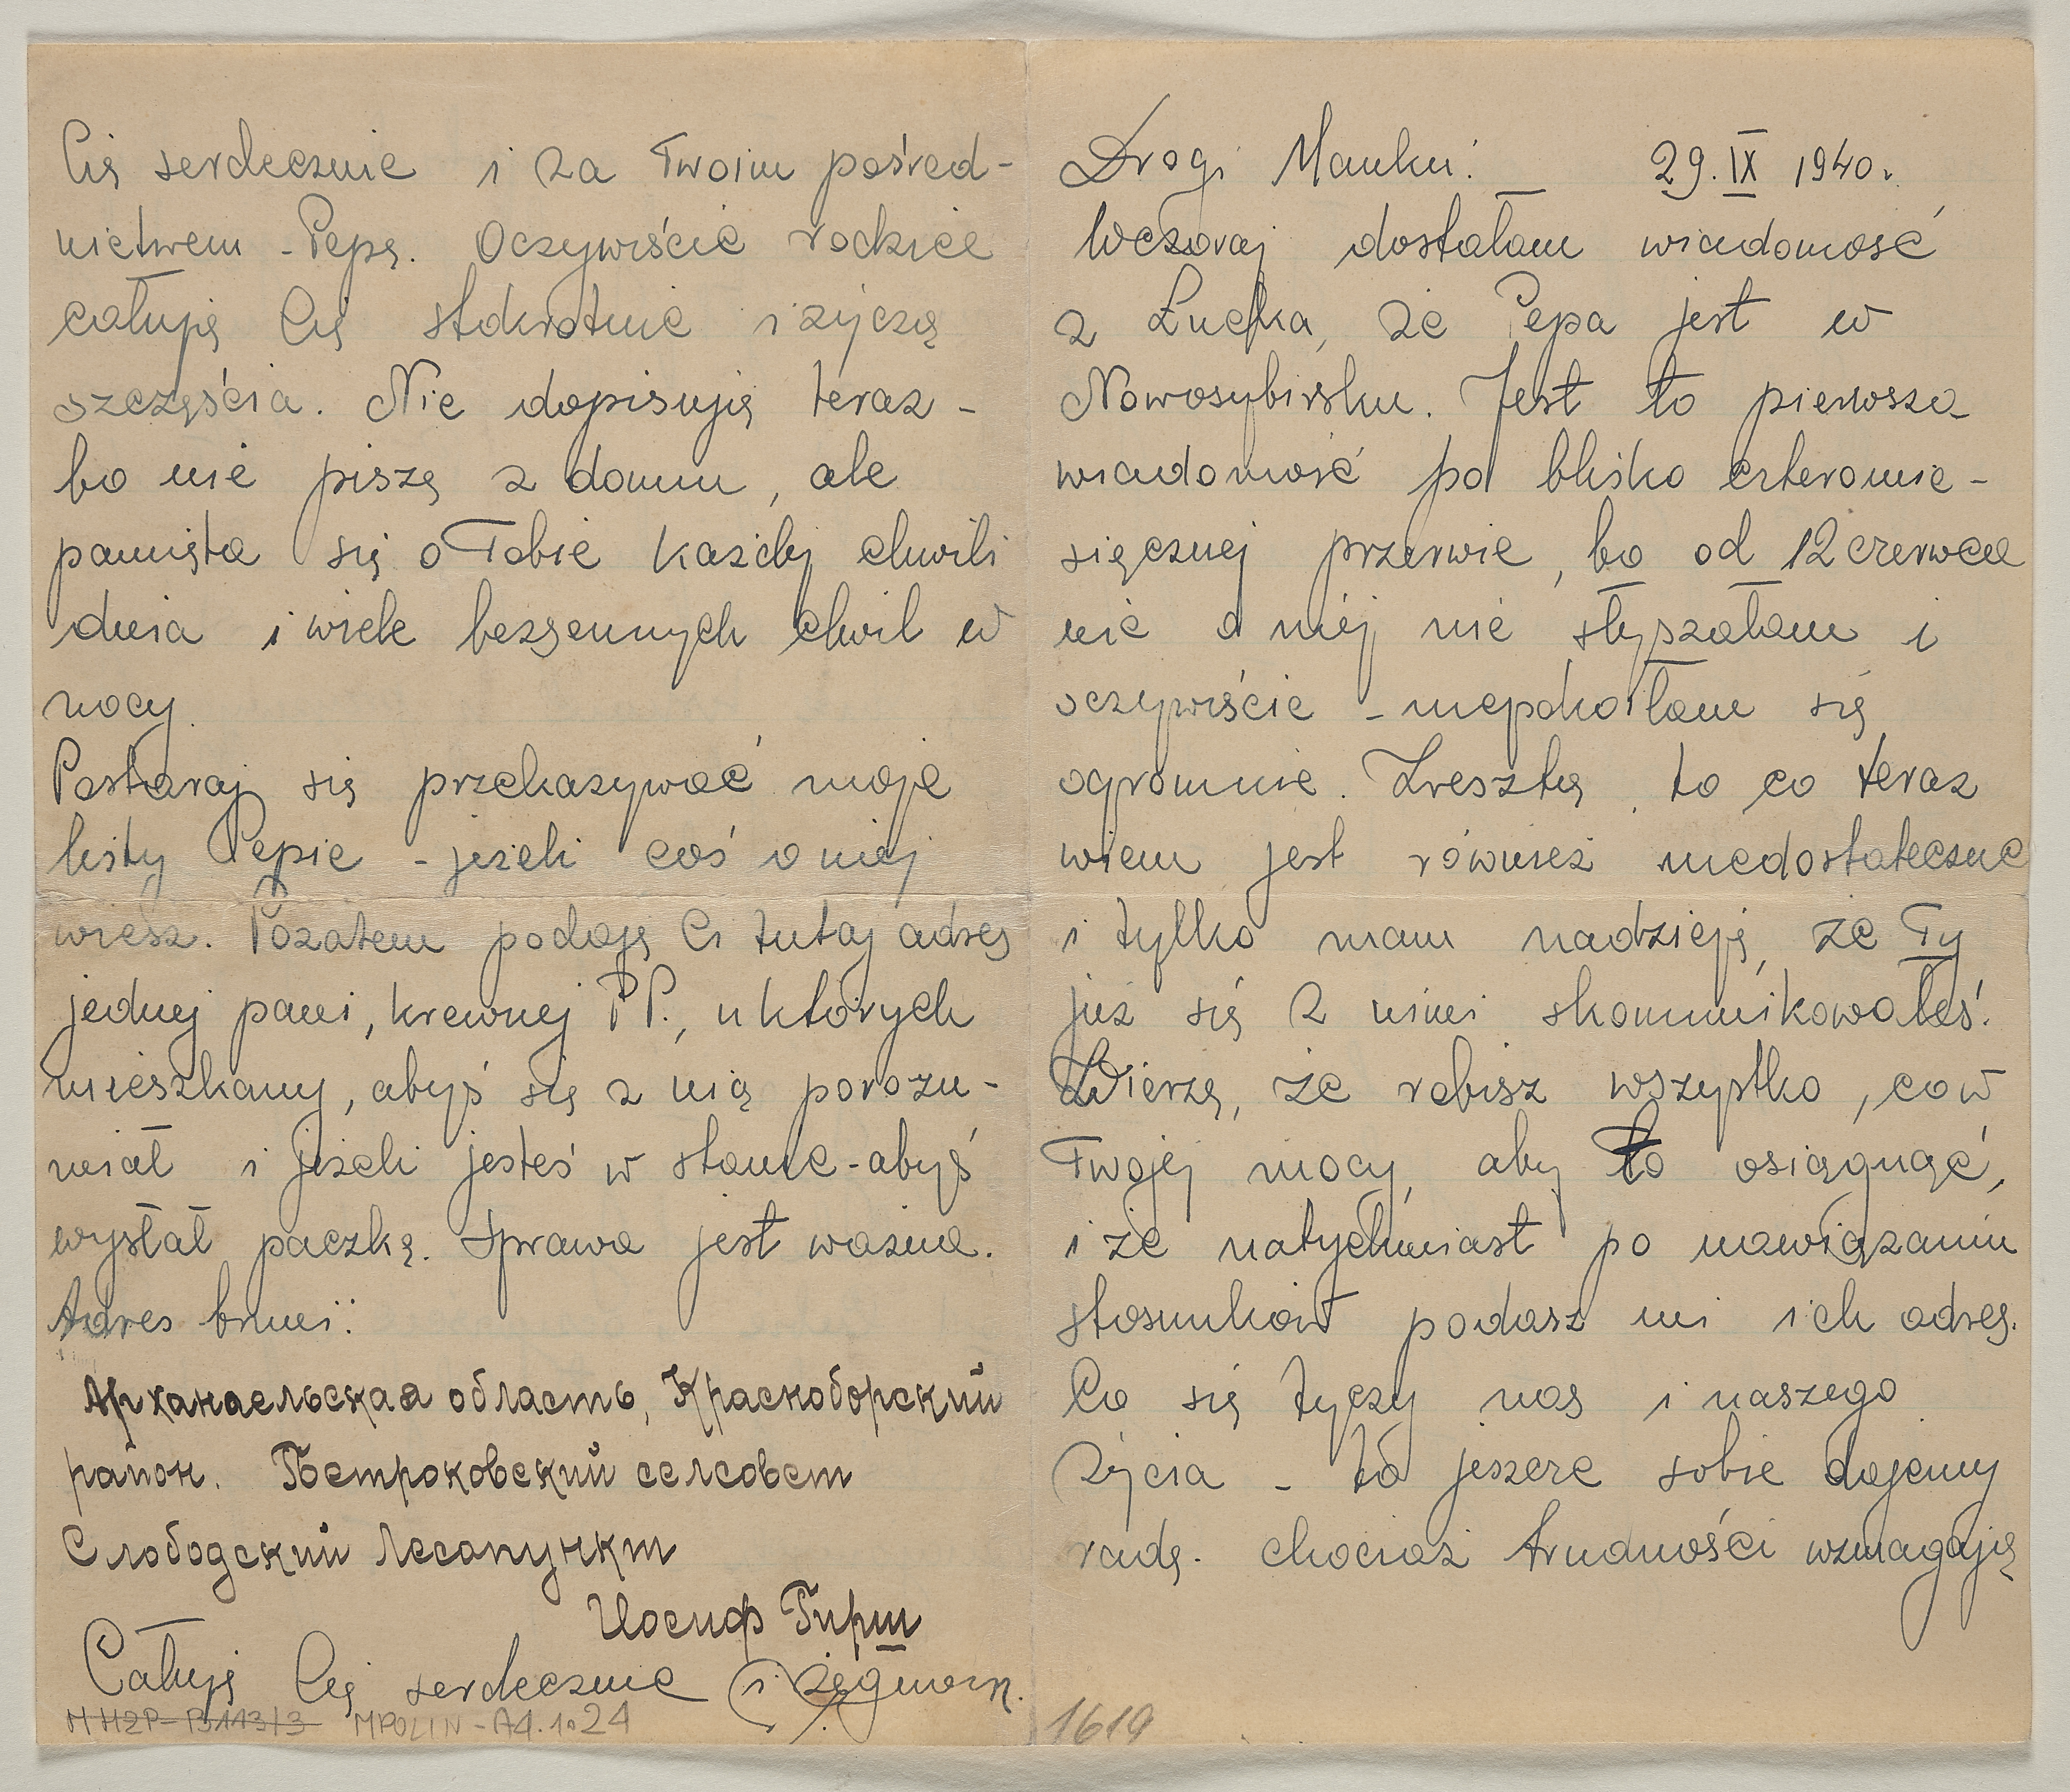 Drogi Manku! 29.IX 1940r.
Wczoraj dostałam wiadomość
z Łucka, że Pepa jest w
Nowosybirsku. Jest to pierwsza
wiadomość po blisko czteromie-
sięcznej przerwie, bo od 12 czerwca
nic o niej nie słyszałam i
oczywiście - niepokoiłam się
ogromnie. Zresztą, to co teraz
wiem jest również niedostateczne
i tylko mam nadzieję, że Ty
już się z nimi skomunikowałeś.
Wierzę, że robisz wszystko, co w
Twojej mocy, aby to osiągnąć,
i że natychmiast po nawiązaniu
stosunków podasz mi ich adres.
Co się tyczy nas i naszego
życia - to jeszcze sobie dajemy
radę. chociaż trudności wzmagają
1619
Cię serdecznie i za Twoim pośred-
nictwem - Pepę. Oczywiście rodzice
całują Cię stokrotnie i życzą
szczęścia. Nie dopisują teraz -
bo nie piszę z domu, ale
pamięta się o Tobie każdej chwili
dnia i wiele bezsennych chwil w
nocy.
Postaraj się przekazywać moje
listy Pepie - jeżeli coś o niej
wiesz. Pozatem podaję Ci tutaj adres
jednej pani, krewnej P.P., u których
mieszkamy, abyś się z nią porozu-
miał i jeżeli jesteś w stanie - abyś
wysłał paczkę. Sprawa jest ważna.
Adres brmi:
Арханаельская область, Краскоборский
район. Петроковский селсовет
Слободский Лесопункт
Иосиф Гирш
Całuję Cię serdecznie i żegnam.
MHŻP-B113/3 MPOLIN-A4.1.24